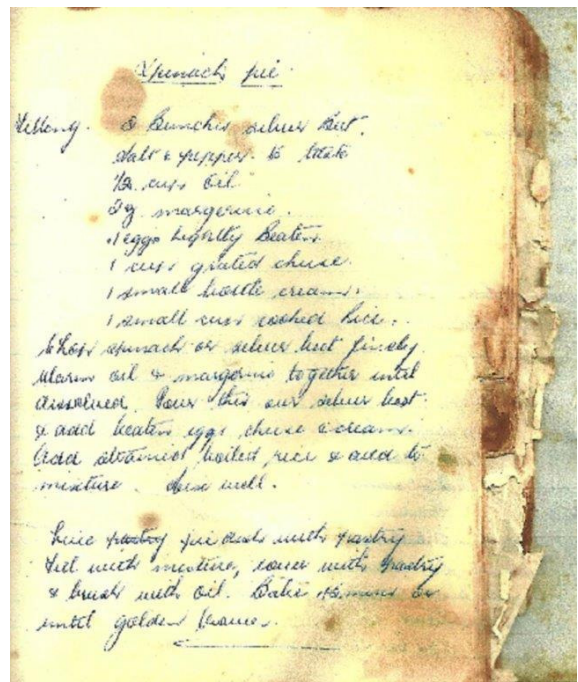 Spinach pie
Filling. 2 Bunches silver beet.
Salt & pepper to taste
1/2 cup oil
2 margerine.
eggs lightly Beaten
1 cup grated cheese.
1 small bottle cream.
1 small cup cooked Rice.
Chop spinach or silver beet finely.
Warm oil & margerine together until
dissolved. Pour this over silver beet.
& add beaten eggs, cheese & cream.
Add strained boiled rice & add to
mixture. Mix well.
Line pastry pie dish with pastry
Fill with mixture, cover with pastry
& brush with oil. Bake mins or
until golden brown.